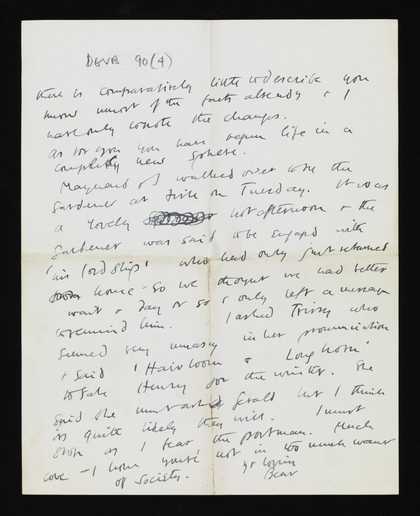 DGVB 90(4)
there is comparatively little to describe you
know most of the facts already & I
have only to note the changes.
as for you you have begun life in a
completely new sphere.
Maynard & I walked over to see the
Gardener at on Tuesday. It was
a lovely hot afternoon & the
Gardener was said to be engaged with
'is lordship' who had only just returned
home - so we thought we had better
wait a day or so & only left a message
to remind him. I asked Trissy who
seemed very uneasy in her pronunciation
& said 'Hairloom & Longhorn'
to take Henry for the winter. She
said she must ask Gerald but I think
its quite likely they will. I must
stop as I fear the postman. Much
love - I hope you're not in too much want
of society. yr loving
Bear